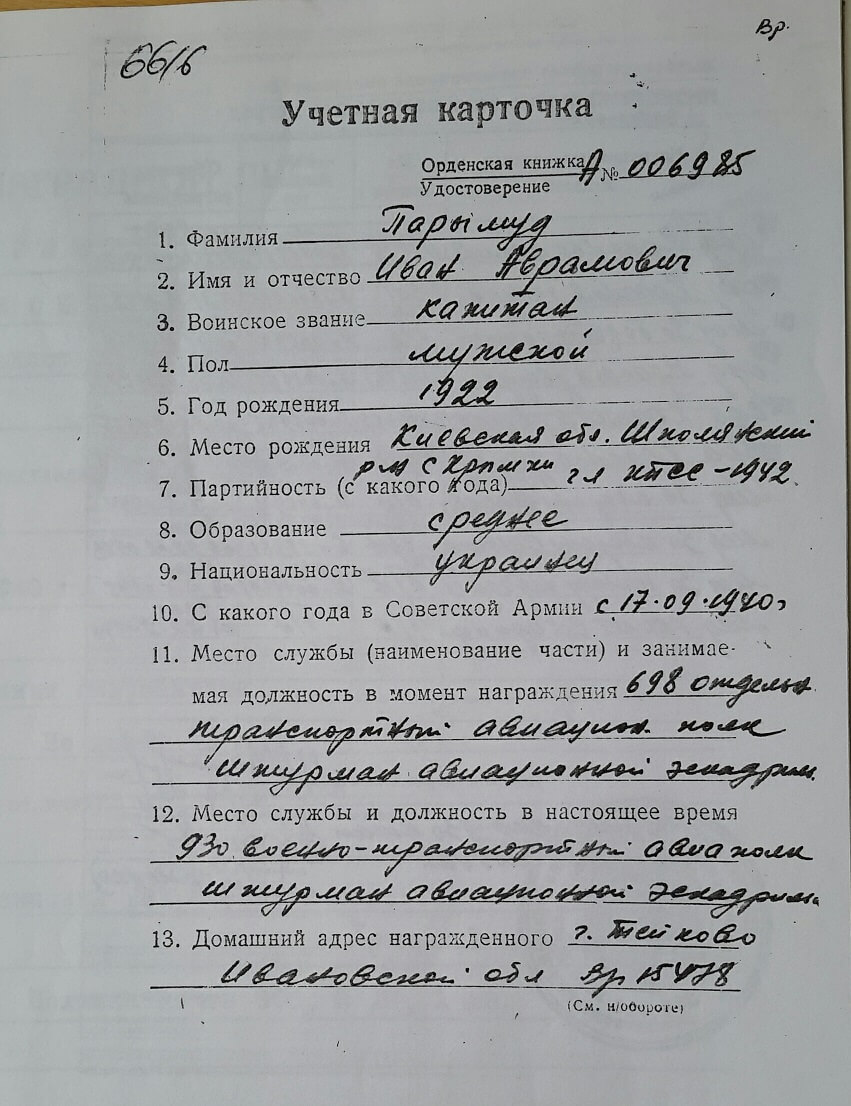 Вр.
6616
Учетная карточка
Орденская книжка А № 006985
Удостоверение
1. Фамилия Парымуд
2. Имя и отчество Иван Аврамович
3. Воинское звание капитан
4. Пол мужской
5. Год рождения 1922
6. Место рождения Киевская обл. Шполянский
р-н с
7. Партийность (с какого года) чл КПСС - 1942
8. Образование среднее
9. Национальность украинец
10. С какого года в Советской Армии с 17.09.1940г
11. Место службы (наименование части) и занимае-
мая должность в момент награждения 698 отдельн
транспортный авиацион. полк
штурман авиационной эскадрил.
12. Место службы и должность в настоящее время
930 военно-транспортный авиаполк
штурман авиационной эскадрильи
13. Домашний адрес награжденного г. Тейково
Ивановской обл 15478
(См. н/обороте)